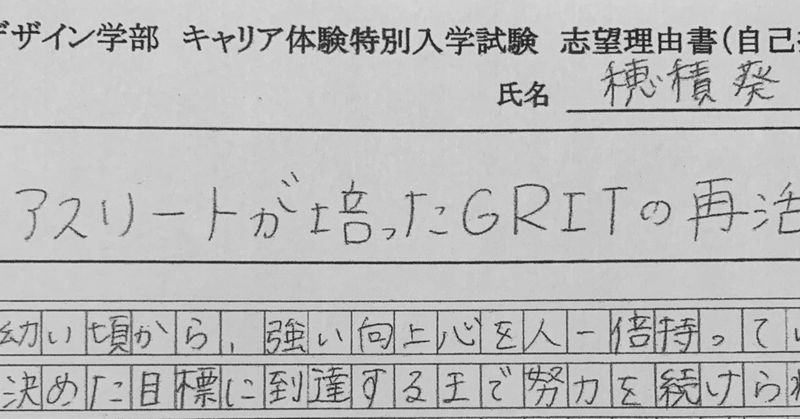 デザイン学部 キャリア体験特別入学試験 志望理由書(自己
氏名 穂積葵
アスリートが培ったGRITの再活
幼い頃から、強い向上心を人一倍持ってい
決めた目標に到達するまで努力を続けられ